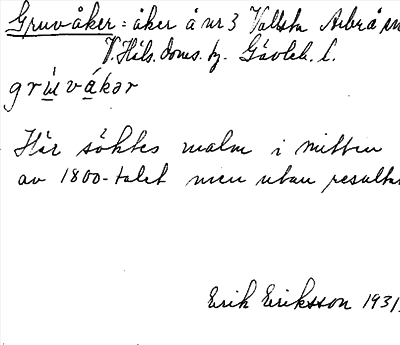 Gruvåker = åker å nr 3 Vallsta Arbrå sn
V. Häls. doms. tg. Gävleb. l.
grùvákər
Här söktes malm i mitten
av 1800-talet men utan resultat
Erik Eriksson 1931.